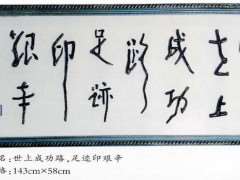 世上
成功
路
足跡
印
艱辛
名:世上成功路,足迹印艰辛
格:143cm×58cm